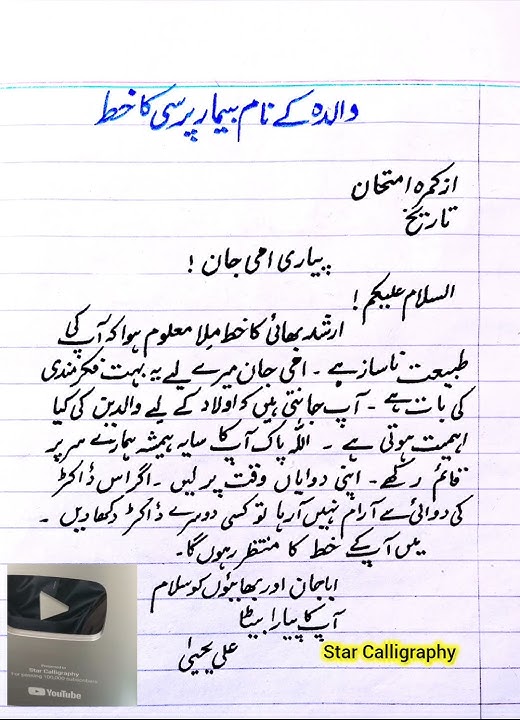 والدہ کے نام بیمار پرسی کا خط
از کمرہ امتحان
تاریخ
پیاری امی جان !
السلام علیکم !
ارشد بھائی کا خط ملا معلوم ہوا کہ آپ کی
طبیعت ناساز ہے ۔ امی جان میرے لیے یہ بہت فکر مندی
کی بات ہے ۔ آپ جانتی ہیں کہ اولاد کے لیے والدین کی کیا
اہمیت ہوتی ہے ۔ اللہ پاک آپ کا سایہ ہمیشہ ہمارے سر پر
قائم رکھے ۔ اپنی دوایاں وقت پر لیں ۔ اگر اس ڈاکٹر
کی دوائی سے آرام نہیں آ رہا تو کسی دوسرے ڈاکٹر دکھا دیں ۔
میں آپ کے خط کا منتظر رہوں گا۔
ابا جان اور بھائیوں کو سلام
آپ کا پیارا بیٹا
علی یحییٰ
Star Calligraphy
Presented to
Star Calligraphy
For passing 100,000 subscribers
YouTube